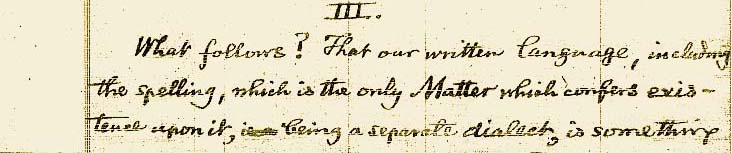 III.
What follows? That our written language, including
the spelling, which is the only Matter which confers exis-
tence upon it, is being a separate dialect, is something